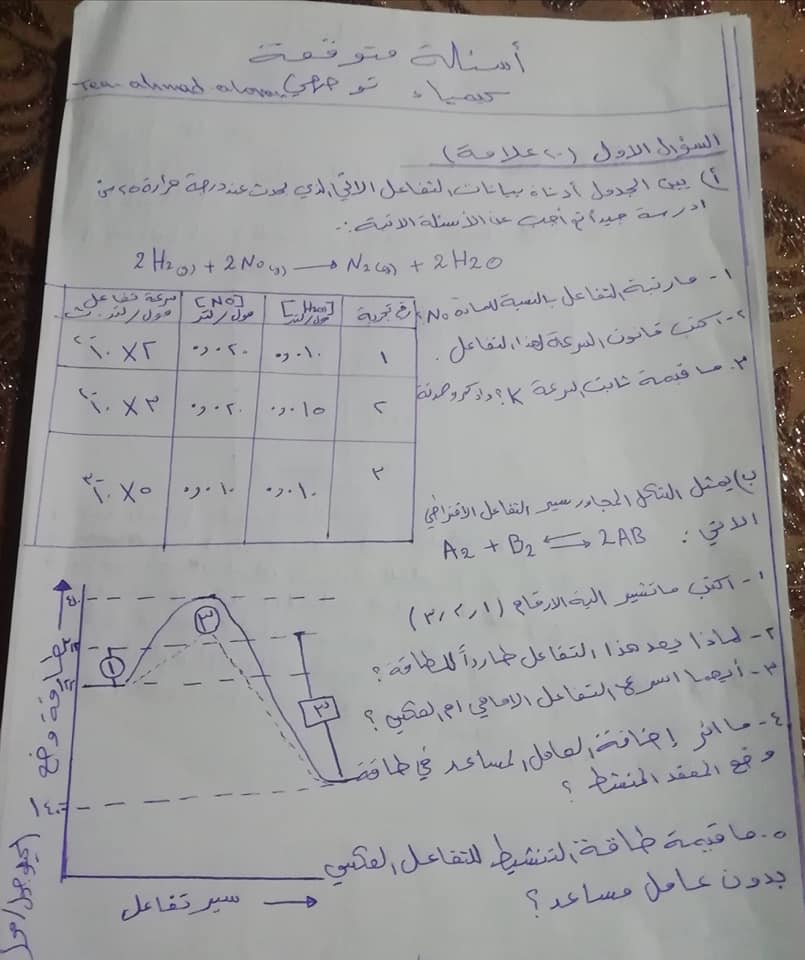 أسئلة متوقعة
كيمياء توجيهي Tea. ahmad
السؤال الاول (٢٠ علامة)
أ) يبين الجدول أدناه بيانات التفاعل الاتي الذي يحدث عند درجة حرارة ٢٥ س
ادرسة جيداً ثم اجب عن الأسئلة الاتية :-
2H₂(g) + 2NO(g) → N₂(g) + 2H2O
١- ما رتبة التفاعل بالنسبة للمادة NO؟
٢- اكتب قانون السرعة لهذا التفاعل .
٣- ما قيمة ثابت السرعة K؟ واذكر وحدته
رقم تجربة [H₂] مول/لتر [NO] مول/لتر سرعة تفاعل مول/لتر.ث
١ ٠,٠١٠ ٠,٠٢٠ ٢ × ١٠⁻٢
٢ ٠,٠١٥ ٠,٠٢٠ ٣ × ١٠⁻٢
٣ ٠,٠١٠ ٠,٠١٠ ٥ × ١٠⁻٣
ب) يمثل الشكل المجاور سير التفاعل الافتراضي
الاتي : A2 + B2 ⇌ 2AB
١- اكتب ماتشير الية الارقام (١،٢،٣)
٢- لماذا يعد هذا التفاعل طارداً للطاقة ؟
٣- أيهما اسرع التفاعل الامامي ام العكسي ؟
٤- ما اثر إضافة العامل المساعد في طاقة
وضع المعقد المنشط ؟
٥- ما قيمة طاقة التنشيط للتفاعل العكسي
بدون عامل مساعد ؟
١
٣
طاقة وضع (كيلوجول/مول)
سير تفاعل